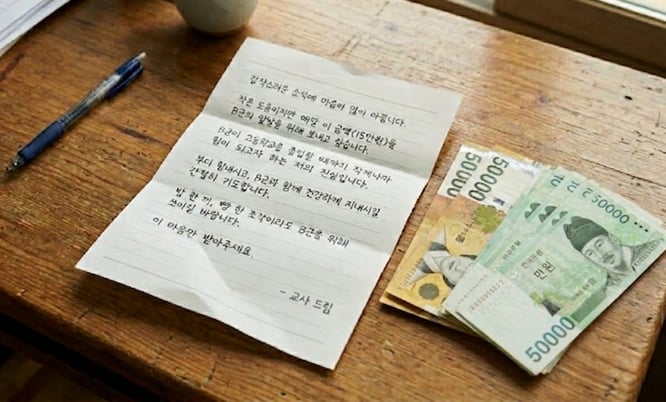 갑작스러운 소식에 마음이 많이 아픕니다.
작은 도움이지만 매달 이 금액(15만원)을
B군의 앞날을 위해 보내고 싶습니다.
B군이 고등학교를 졸업할 때까지 작게나마
힘이 되고자 하는 저의 진심입니다.
부디 힘내시고, B군과 함께 건강하게 지내시길
간절히 기도합니다.
밥 한 끼, 빵 한 조각이라도 B군을 위해
쓰이길 바랍니다.
이 마음만 받아주세요.
- 교사 드림
50000
50000
50000
만원
50000